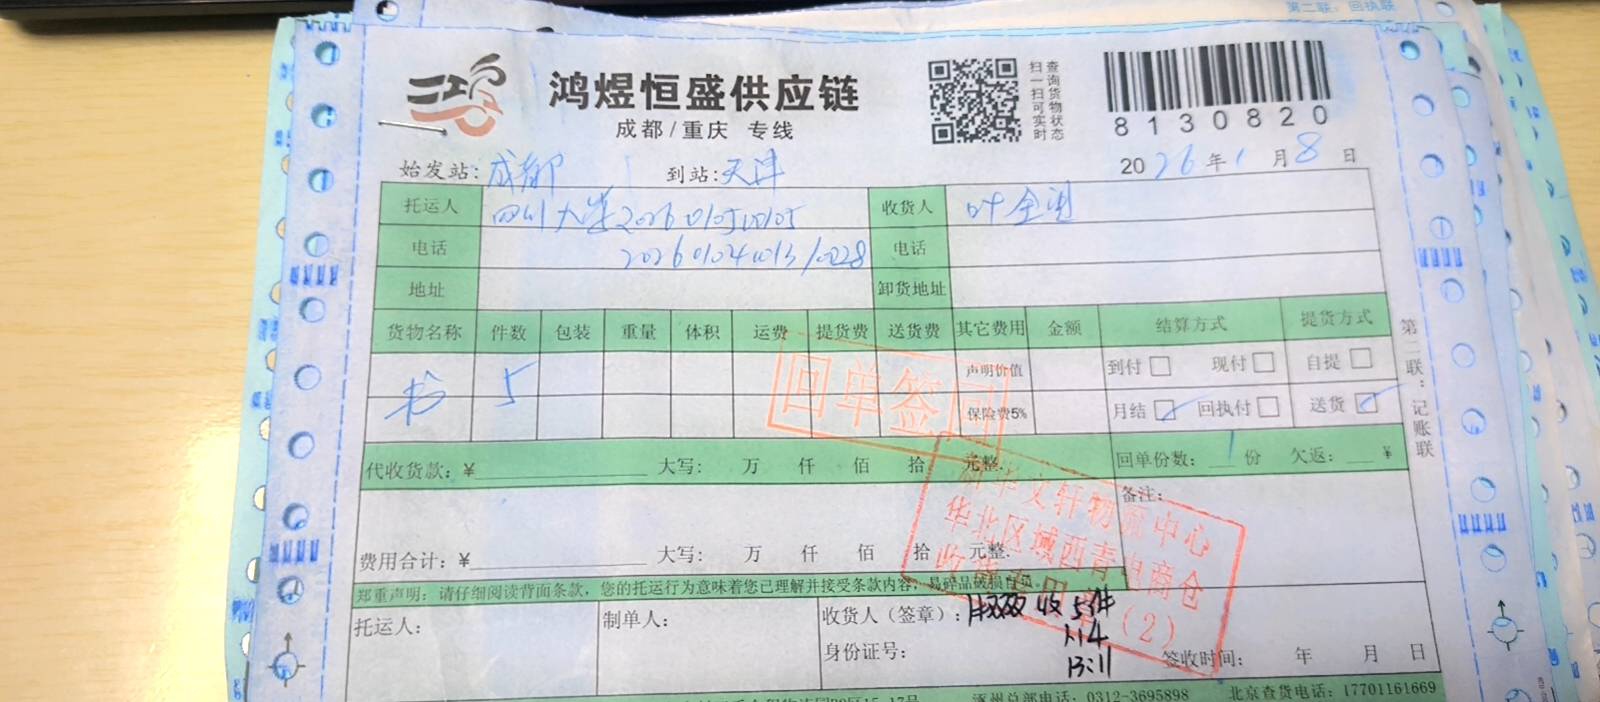 第二联：回执联
鸿煜恒盛供应链
成都/重庆 专线
扫一扫可实时
查询货物状态
8130820
始发站：成都 到站：天津 2026年1月8日
托运人 四川大学2026010510105 收货人 叶全国
电话 2026010410131/10228 电话
地址 卸货地址
货物名称 件数 包装 重量 体积 运费 提货费 送货费 其它费用 金额 结算方式 提货方式
声明价值 到付 现付 自提
书 5 保险费5% 月结 回执付 送货
回单签回
代收货款：¥ 大写： 万 仟 佰 拾 元整. 回单份数：1 份 欠返： ¥
备注：
新华文轩物流中心
华北区域西青电商仓
收货专用章（2）
费用合计：¥ 大写： 万 仟 佰 拾 元整.
郑重声明：请仔细阅读背面条款，您的托运行为意味着您已理解并接受条款内容，易碎品破损自负。
托运人： 制单人： 收货人（签章）： 收5件
1.14
身份证号： 13:11 签收时间： 年 月 日
涿州总部电话：0312-3695898 北京查货电话：17701161669
第二联：记账联